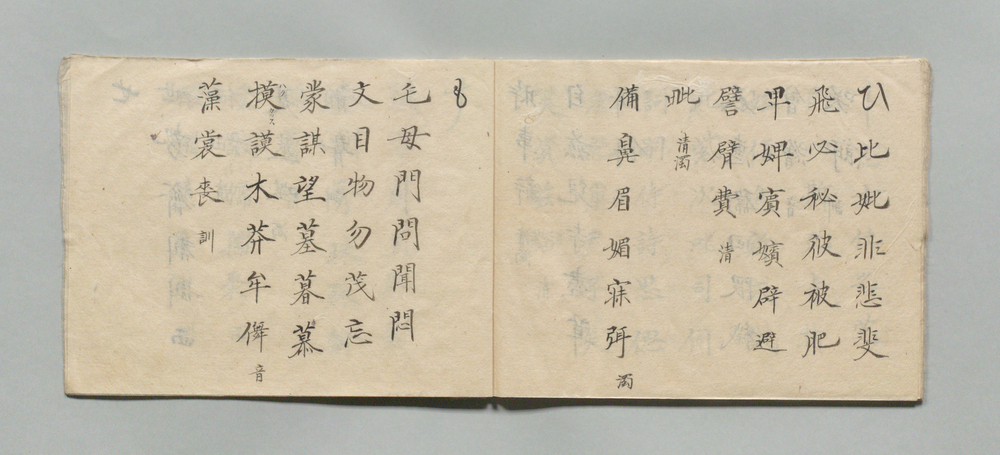 ひ比妣非悲斐
飛必秘彼被肥
卑婢賓嬪辟避
譬臂費 清
毗 清濁
備鼻眉媚寐弭 濁
も
毛母門問聞悶
文目物勿茂忘
蒙謀望墓暮慕
模謨木莽牟 音
藻裳喪 訓